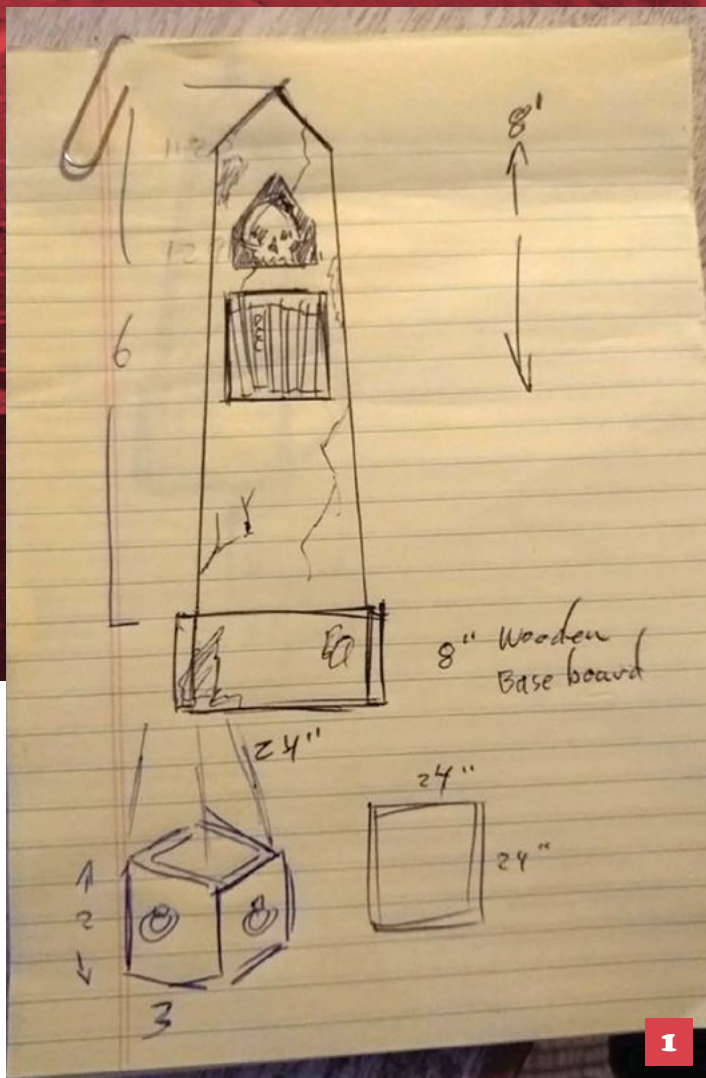 8'
6
8" Wooden
Base board
24"
24"
24"
2
3
1